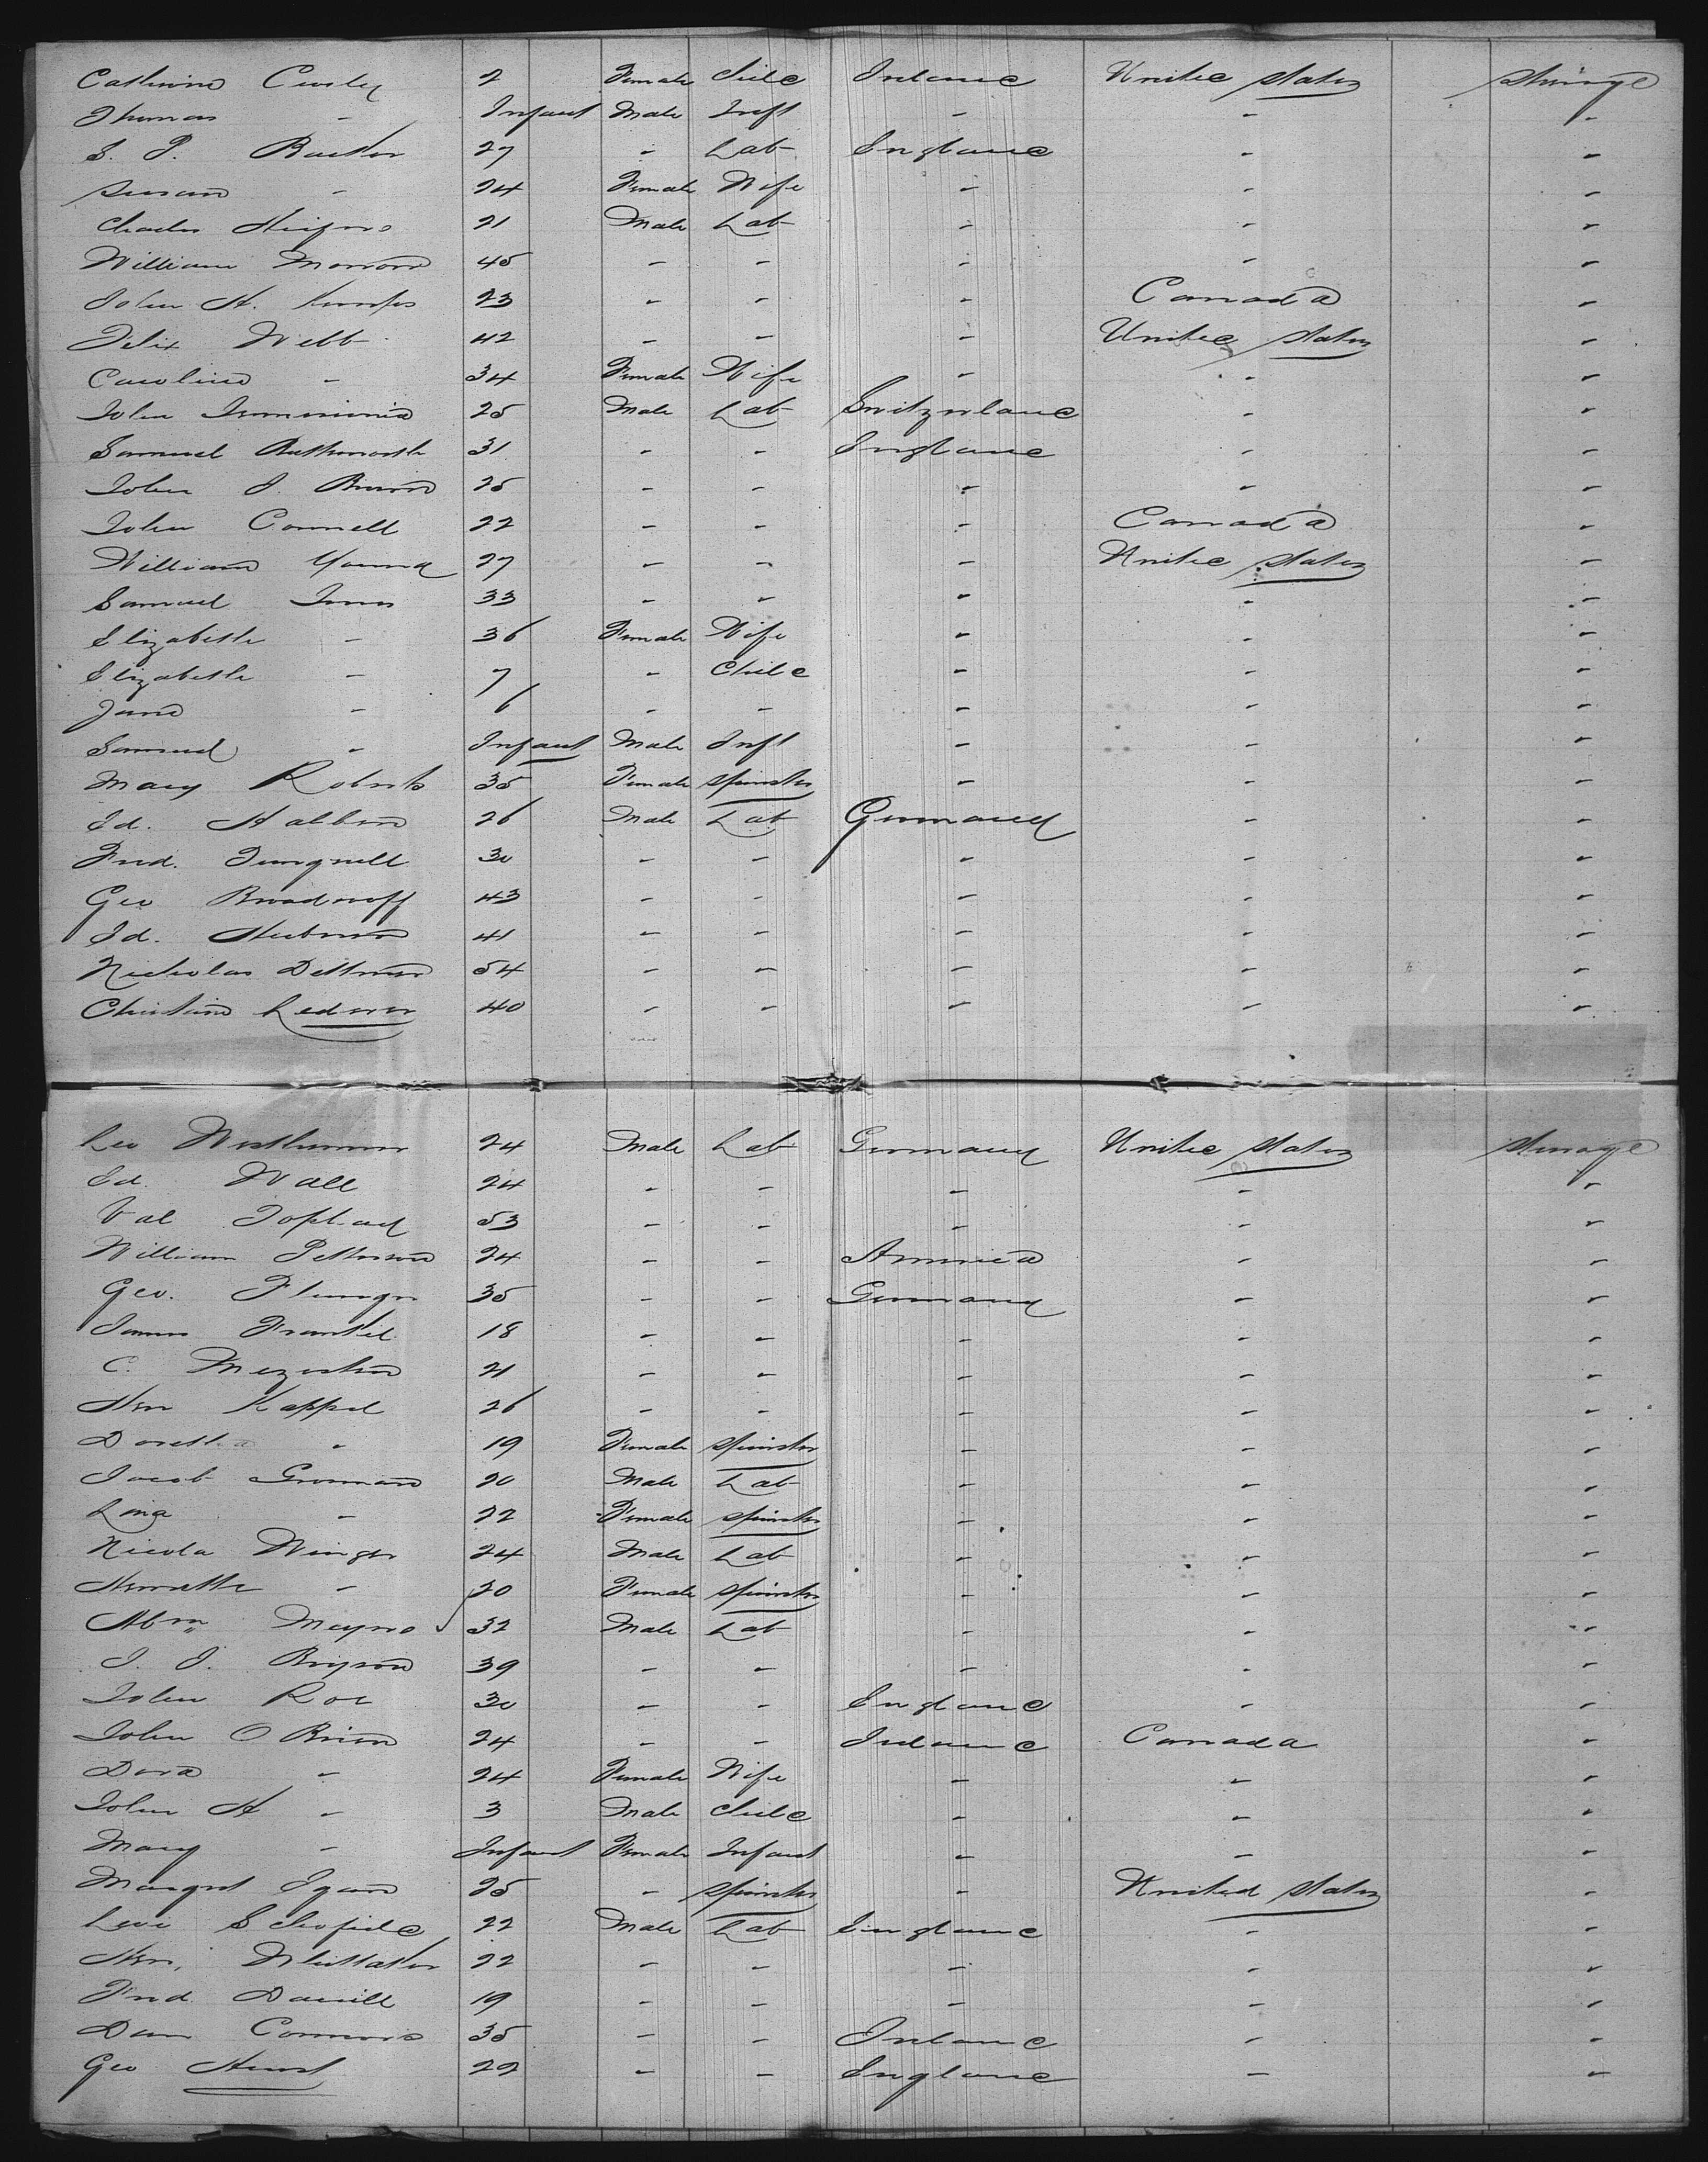 Catherine Curley 2 Female Child Ireland United States Steerage
Thomas - Infant Male Inft - - -
S. P. Barker 27 - Lab England - -
Susan - 24 Female Wife - - -
Charles 21 Male Lab - - -
William 45 - - - - -
John H. 23 - - - Canada -
Felix Webb 42 - - - United States -
Caroline - 34 Female Wife - - -
John 25 Male Lab Switzerland - -
Samuel Butterworth 31 - - England - -
John J. 25 - - - - -
John Connell 22 - - - Canada -
William Young 27 - - - United States -
Samuel 33 - - - - -
Elizabeth - 36 Female Wife - - -
Elizabeth - 7 - Child - - -
Jane - 6 - - - - -
Samuel - Infant Male Inft - - -
Mary Roberts 35 Female Spinster - - -
Ed. 26 Male Lab Germany - -
Fred. 30 - - - - -
Geo 43 - - - - -
Ed. 41 - - - - -
Nicholas 54 - - - - -
40 - - - - -
Leo 24 Male Lab Germany United States Steerage
Ed. Wall 24 - - - - -
Val 53 - - - - -
William Petterson 24 - - America - -
Geo. 35 - - Germany - -
James Frankel 18 - - - - -
C. 21 - - - - -
Hen Kappel 26 - - - - -
Dorethea - 19 Female Spinster - - -
Jacob 20 Male Lab - - -
Lina - 22 Female Spinster - - -
Nicola Winger 24 Male Lab - - -
- 20 Female Spinster - - -
Abrm Meyers 32 Male Lab - - -
39 - - - - -
John Roe 30 - - England - -
John O Brien 24 - - Ireland Canada -
Dora - 24 Female Wife - - -
John H - 3 Male Child - - -
Mary - Infant Female Infant - - -
Margret Egan 25 - Spinster - United States -
Levi Schofield 22 Male Lab England - -
Hen. Whittaker 22 - - - - -
Fred. 19 - - - - -
Dan Connors 35 - - Ireland - -
Geo Hurst 22 - - England - -